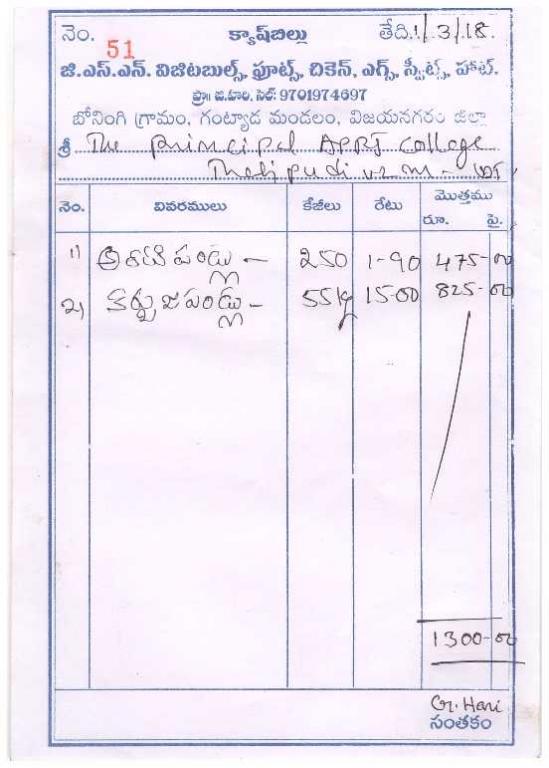 నెం. 51 క్యాష్‌బిల్లు తేది. 1/3/18.
జి.ఎస్.ఎన్. విజిటబుల్స్, ఫ్రూట్స్, చికెన్, ఎగ్స్, స్వీట్స్, హాట్.
ప్రొ॥ జి.హరి, సెల్: 9701974697
బోనింగి గ్రామం, గంట్యాడ మండలం, విజయనగరం జిల్లా
శ్రీ The principal APRJ College
Thatipudi vzm -
నెం. వివరములు కేజీలు రేటు మొత్తము
రూ. పై.
1) అరటి పండ్లు - 250 1-90 475-00
2) కర్బుజ పండ్లు - 55 kg 15-00 825-00
1300-00
G. Hari
సంతకం